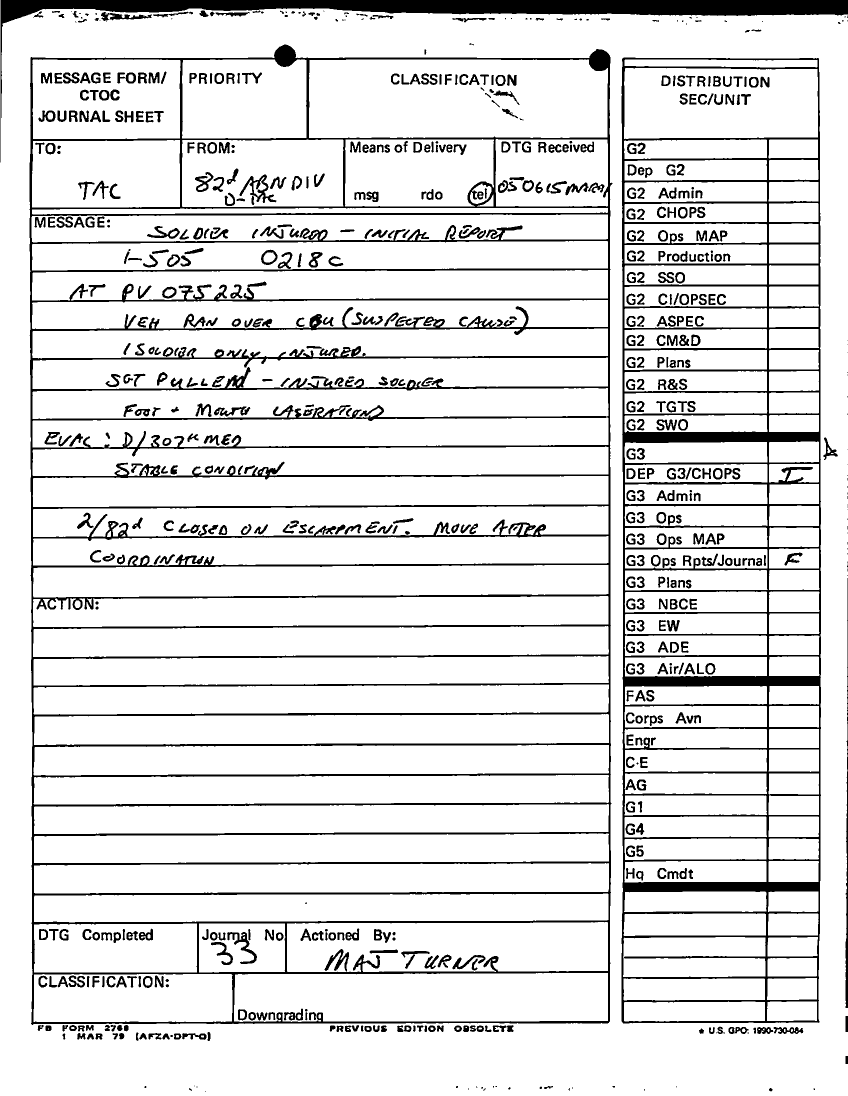 MESSAGE FORM/
CTOC
JOURNAL SHEET
PRIORITY
CLASSIFICATION
TO:
TAC
FROM:
82d ABN DIV
D-TAC
Means of Delivery
msg rdo tel
DTG Received
050615MAR91
MESSAGE:
SOLDIER INJURED - INITIAL REPORT
1-505 0218C
AT PV 075225
VEH RAN OVER CBU (SUSPECTED CAUSE)
1 SOLDIER ONLY, INJURED.
SGT PULLEN - INJURED SOLDIER
FOOT + MOUTH LASERATIONS
EVAC: D/307th MED
STABLE CONDITION
2/82d CLOSED ON ESCARPMENT. MOVE AFTER
COORDINATION
ACTION:
DTG Completed
Journal No
33
Actioned By:
MAJ TURNER
CLASSIFICATION:
Downgrading
FB FORM 2768
1 MAR 79 (AFZA-DPT-O)
PREVIOUS EDITION OBSOLETE
DISTRIBUTION
SEC/UNIT
G2
Dep G2
G2 Admin
G2 CHOPS
G2 Ops MAP
G2 Production
G2 SSO
G2 CI/OPSEC
G2 ASPEC
G2 CM&D
G2 Plans
G2 R&S
G2 TGTS
G2 SWO
G3
DEP G3/CHOPS I
G3 Admin
G3 Ops
G3 Ops MAP
G3 Ops Rpts/Journal F
G3 Plans
G3 NBCE
G3 EW
G3 ADE
G3 Air/ALO
FAS
Corps Avn
Engr
C-E
AG
G1
G4
G5
Hq Cmdt
* U.S. GPO: 1990-730-084